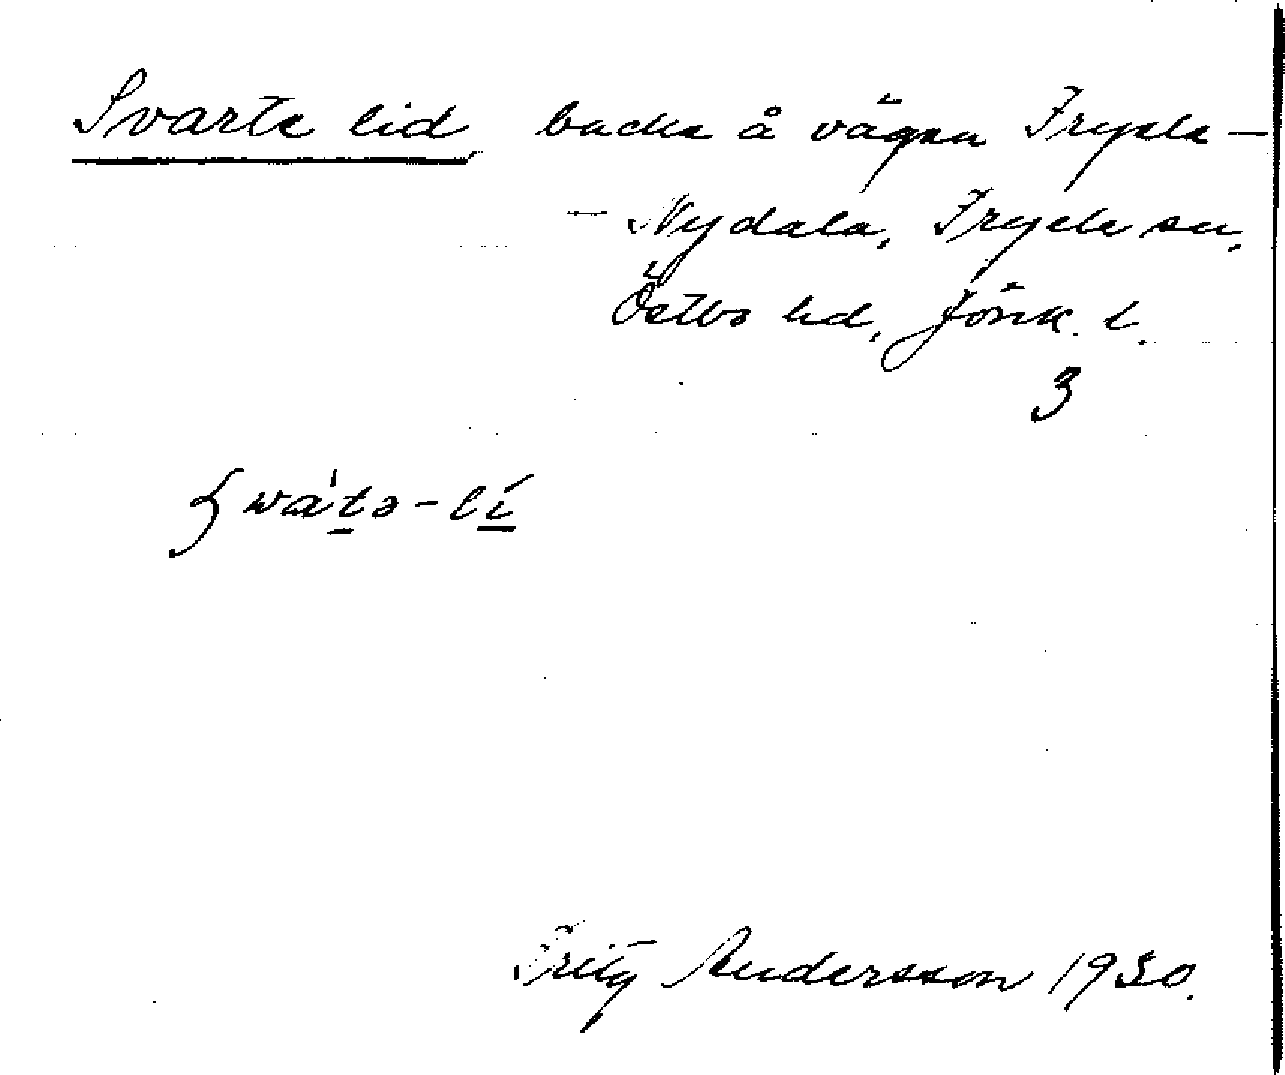 Svarte lid, backe å vägen Fryele –
– Nydala, Fryele sn,
Östbo hd, Jönk. l.
3
ʃwátə-lí
Fritz Andersson 1930.